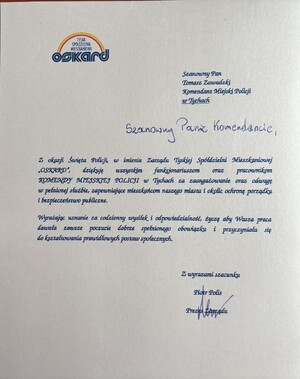 TYSKA
SPÓŁDZIELNIA
MIESZKANIOWA
OSKARD
Szanowny Pan
Tomasz Zawadzki
Komendant Miejski Policji
w Tychach
Szanowny Panie Komendancie,
Z okazji Święta Policji, w imieniu Zarządu Tyskiej Spółdzielni Mieszkaniowej
„OSKARD”, dziękuję wszystkim funkcjonariuszom oraz pracownikom
KOMENDY MIEJSKIEJ POLICJI w Tychach za zaangażowanie oraz odwagę
w pełnionej służbie, zapewniające mieszkańcom naszego miasta i okolic ochronę porządku
i bezpieczeństwo publiczne.
Wyrażając uznanie za codzienny wysiłek i odpowiedzialność, życzę aby Wasza praca
dawała zawsze poczucie dobrze spełnionego obowiązku i przyczyniała się
do kształtowania prawidłowych postaw społecznych.
Z wyrazami szacunku
Piotr Polis
Prezes Zarządu